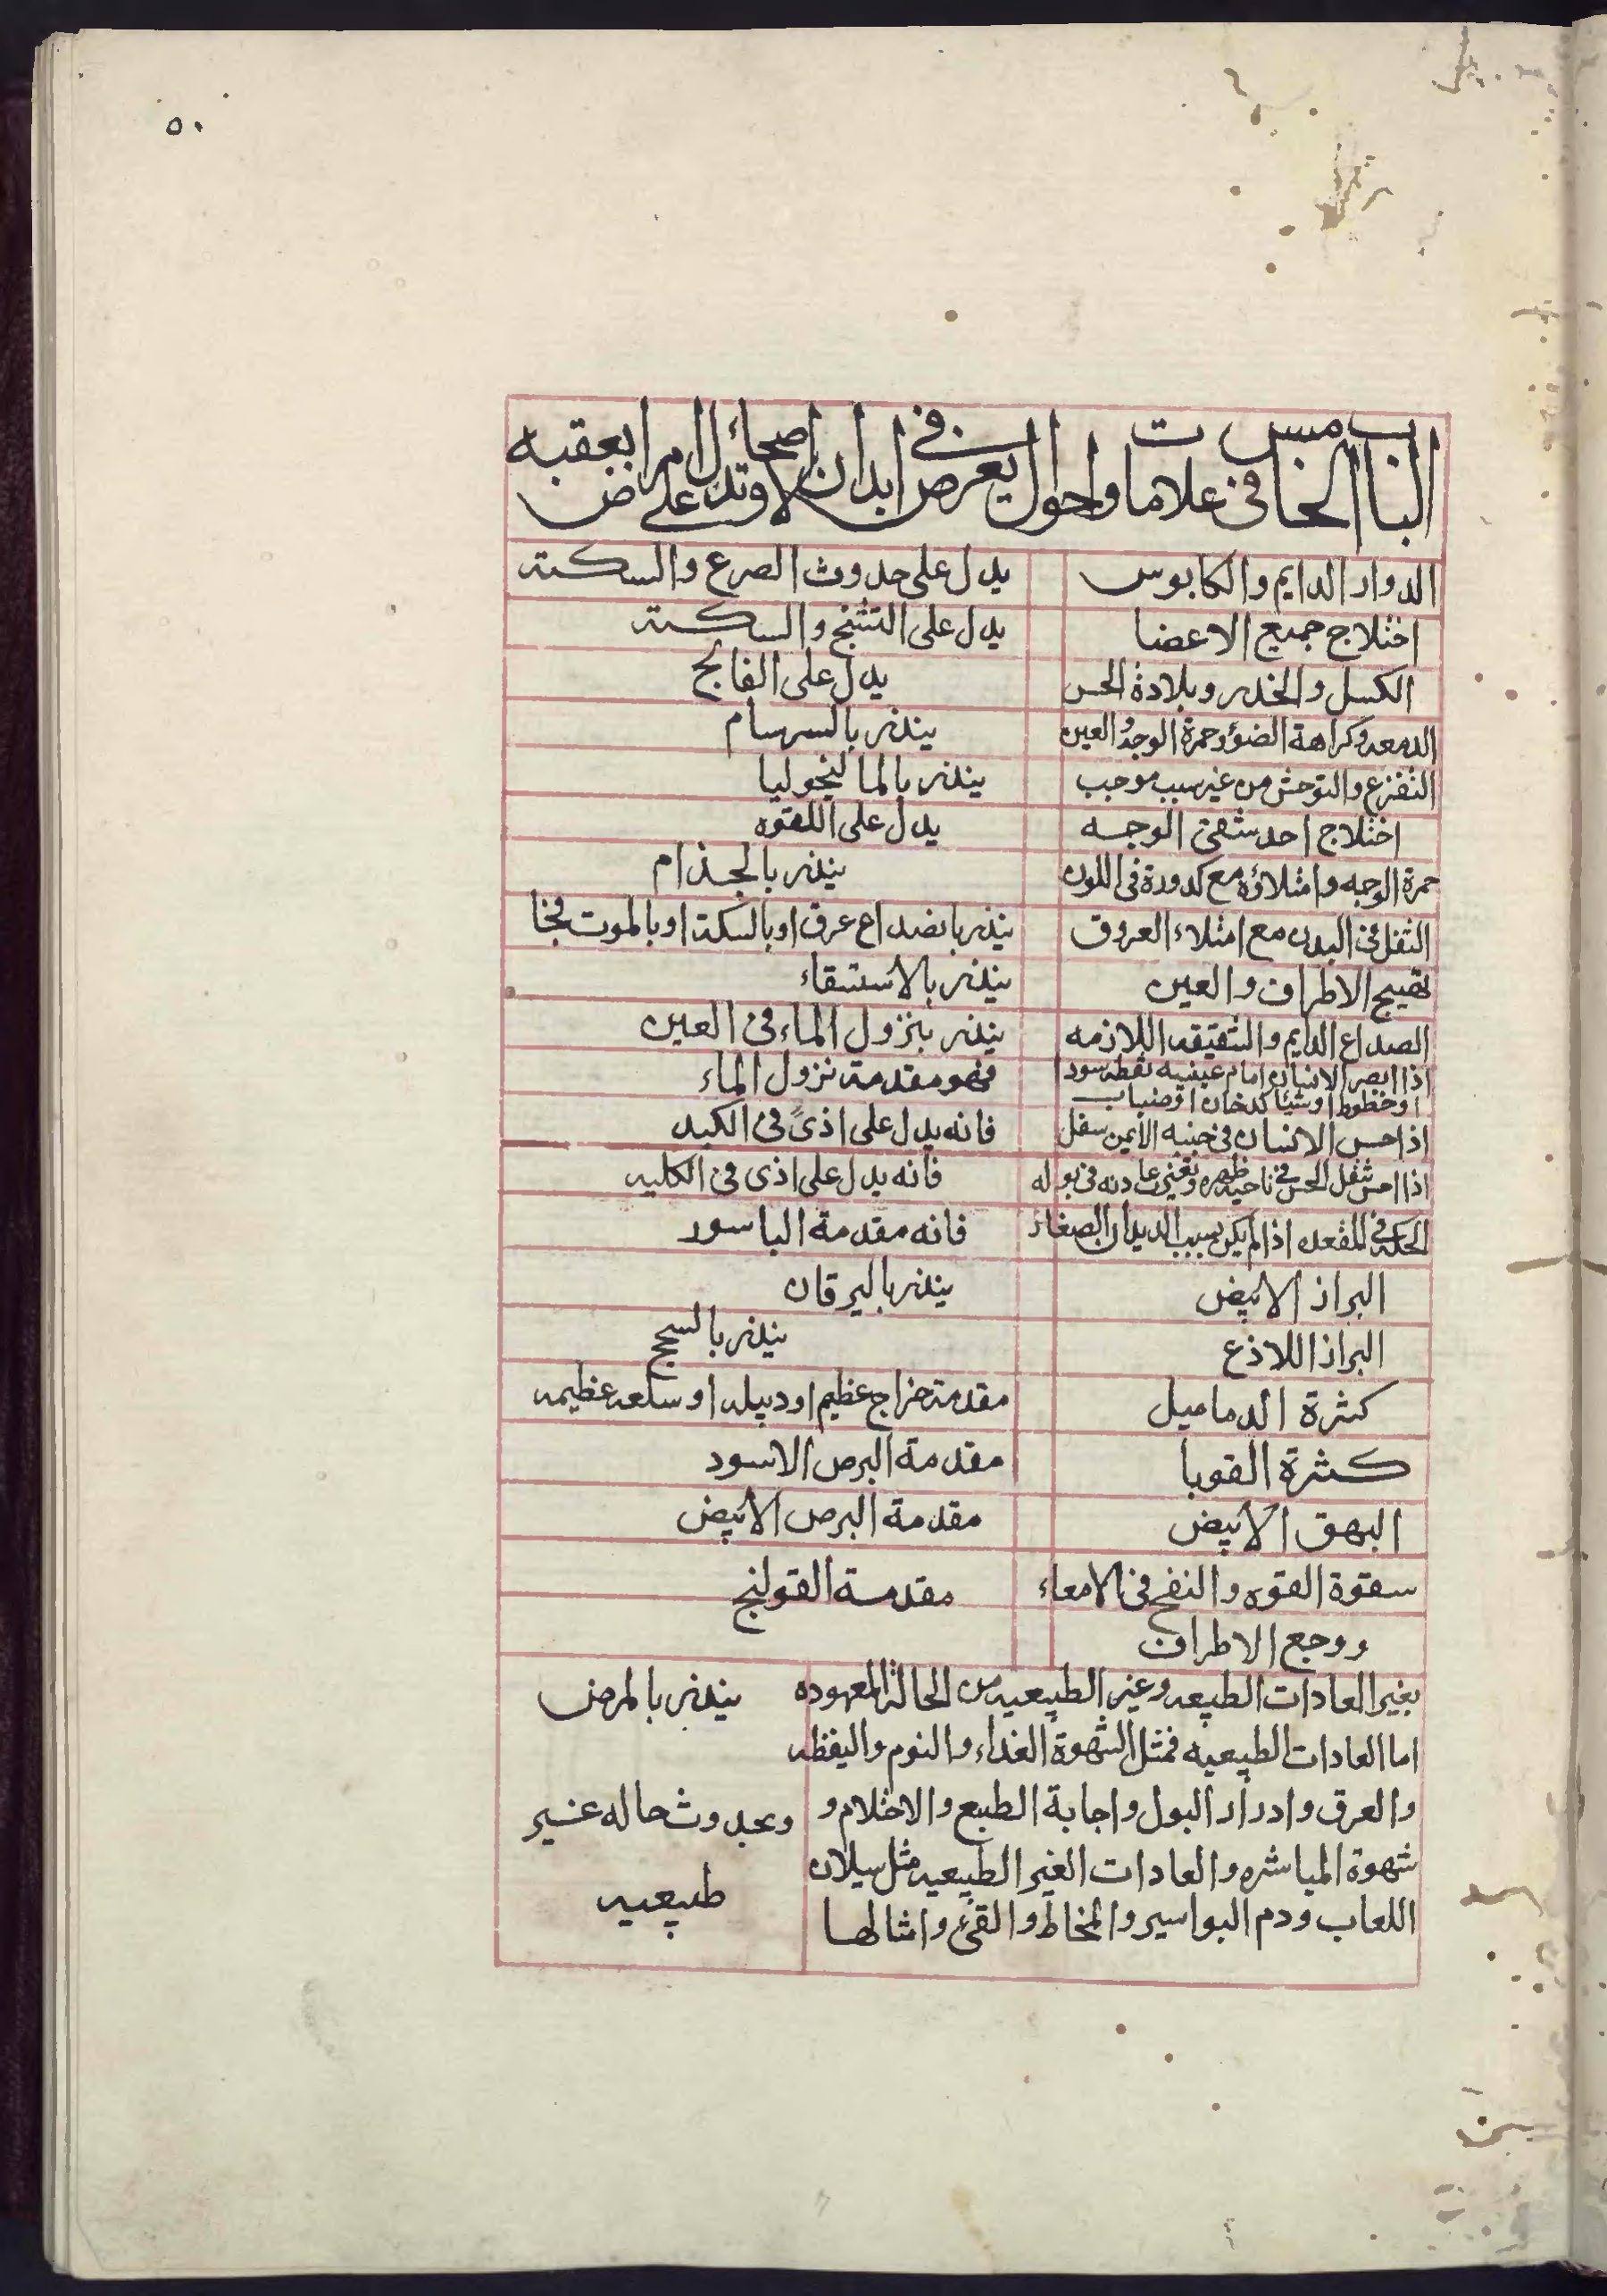 ٥٠
الباب الخامس في علامات واحوال يعرض في ابدان الاصحاء وتدل على امراض بعقبه
الدوار الدايم والكابوس يدل على حدوث الصرع والسكته
اختلاج جميع الاعضا يدل على التشنج والسكته
الكسل والخدر وبلادة الحس يدل على الفالج
الدمعه وكراهة الضؤ وحمرة الوجه والعين ينذر بالسرسام
التفزع والتوحش من غير سبب موجب ينذر بالمالنيخوليا
اختلاج احد شقى الوجه يدل على اللقوه
حمرة الوجه وامتلاؤه مع كدورة في اللون ينذر بالجذام
الثقل في البدن مع امتلاء العروق ينذر بانصداع عرق او بالسكته او بالموت فجا
تهيج الاطراف والعين ينذر بالاستسقاء
الصداع الدايم والشقيقه اللازمه ينذر بنزول الماء في العين
اذا ابصر الانسان امام عينيه نقطه سودا فهو مقدمة نزول الماء
او خطوط او شيئا كدخان او ضباب
اذا حس الانسان في جنبه الأيمن سفل فانه يدل على اذىً في الكبد
اذا احس بثقل الحس في ناحية ظهره وتغير عادته في بوله فانه يدل على اذى في الكليه
الحكه في المقعده اذا لم يكن بسبب الديدان الصغار فانه مقدمة الباسور
البراز الابيض ينذر باليرقان
البراز اللاذع ينذر بالسحج
كثرة الدماميل مقدمة خراج عظيم او دبيله او سلعه عظيمه
كثرة القوبا مقدمة البرص الاسود
البهق الابيض مقدمة البرص الابيض
سقوة القوه والنفخ في الامعاء مقدمة القولنج
ووجع الاطراف
بغير العادات الطبيعه وغير الطبيعيه من الحالة المعهوده ينذر بالمرض
اما العادات الطبيعيه فمثل الشهوة الغداء والنوم واليقظه
والعرق وادرار البول واجابة الطبع والاحتلام و وبحدوث حاله غير
شهوة المباشره والعادات الغير الطبيعيه مثل سيلان
طبيعيه
اللعاب ودم البواسير والمخاط والقئ وامثالها